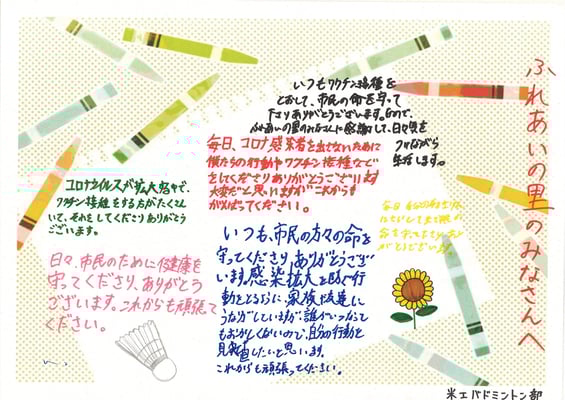 ふれあいの里のみなさんへ
いつもワクチン接種を
とおして、市民の命を守って
下さりありがとうございます。
ふれあいの里のみなさんに感謝して、日々を
生活します。
毎日、コロナ感染者を出さないために
僕たちの行動やワクチン接種などを
してくださりありがとうございます
大変だと思いますがこれからも
がんばってください。
コロナウイルスが拡大する中で、
ワクチン接種をする方がたくさん
いて、それをしてくださりありがとう
ございます。
日々、市民のために健康を
守ってくださり、ありがとう
ございます。これからも頑張って
ください。
いつも、市民の方々の命を
守ってくださり、ありがとうござ
います。感染拡大を防ぐ行
動をとるように、家族や友達に
うながしていますが、誰がいつなっても
おかしくないので、自分の行動を
見直したいと思います。
これからも頑張ってください。
米工バドミントン部